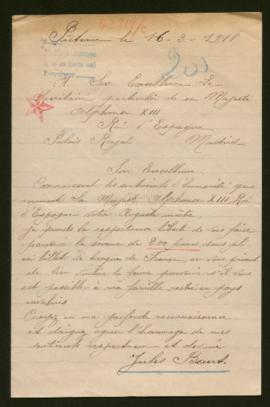 le 16-2-1918
A Son Excellence Le
Secrétaire particulier de sa Majesté
Alphonse XIII
Roi d'Espagne
Palais Royal Madrid
Son Excellence
Connaissant les sentiments d'humanité qui
animent Sa Majesté Alphonse XIII, Roi
d'Espagne votre Auguste maître,
je prends la respectueuse liberté de vous faire
parvenir la somme de 200 francs sous pli
en billet de banque de France, en vous priant
de bien vouloir la faire parvenir s'il vous
est possible à ma famille restée en pays
envahis
ma profonde reconnaissance
et daignez agréer l'hommage de mes
sentiments respectueux et
Jules Baert